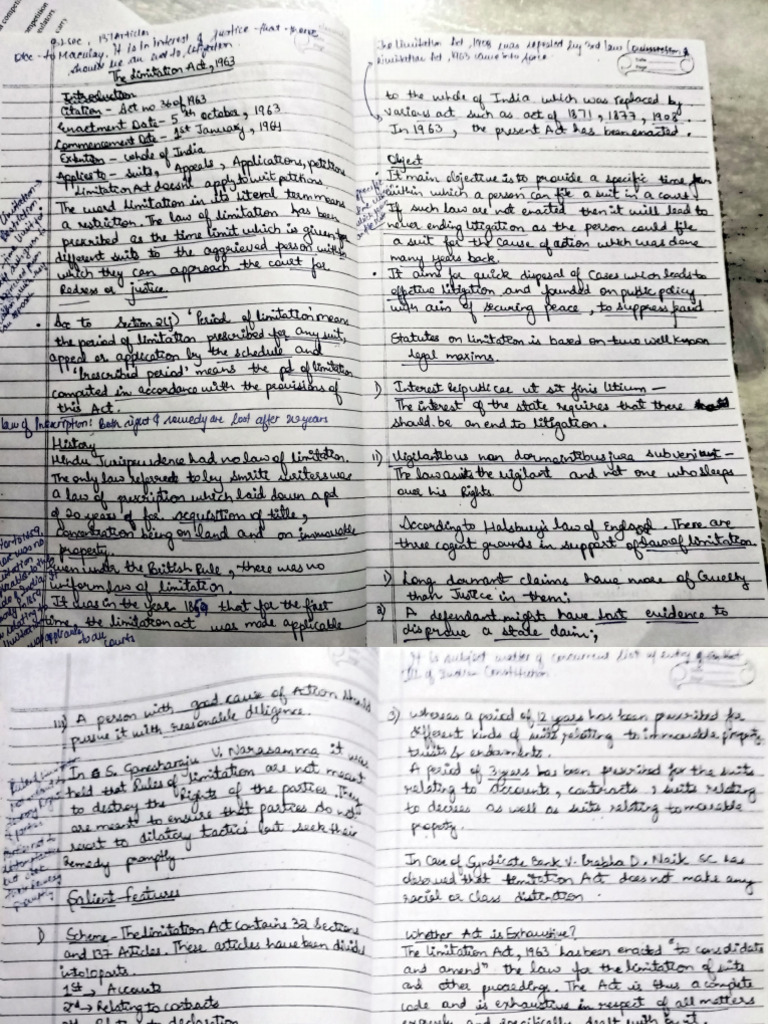 32 sec, 137 Articles
Acc to Macaulay, It is in interest of Justice that there
should be an end to litigation
The Limitation Act, 1963
Introduction
Citation - Act no 36 of 1963
Enactment Date - 5th October, 1963
Commencement Date - 1st January, 1964
Extention - Whole of India
Applies to - Suits, Appeals, Applications, petitions
Limitation Act doesn't apply to writ petitions.
The word limitation in its literal term means
a restriction. The law of limitation has been
prescribed as the time limit which is given for
different suits to the aggrieved person within
which they can approach the court for
Redress or justice.
• Acc to Section 2(j) 'Period of limitation' means
the period of limitation prescribed for any suit,
appeal or application by the schedule and
'Prescribed period' means the pd of limitation
computed in accordance with the provisions of
this Act.
Law of Prescription: Both right & remedy are lost after 20 years
History
Hindu Jurisprudence had no law of limitation.
The only law referred to by Smriti writers was
a law of prescription which laid down a pd
of 20 years of for acquisition of title,
concentration being on land and on immovable
property.
Even under the British Rule, there was no
uniform law of limitation.
It was in the year 1859 that for the first
time, the limitation act was made applicable
to all courts
The Limitation Act, 1908 was repealed by 3rd law Commission &
Limitation Act, 1963 came into force
to the whole of India which was replaced by
various act such as act of 1871, 1877, 1908.
In 1963, the present Act has been enacted.
Object
• It main objective is to provide a specific time frame
within which a person can file a suit in a court.
If such law are not enacted then it will lead to
never ending litigation as the person could file
a suit for the cause of action which was done
many years back.
• It aims for quick disposal of cases which leads to
effective litigation and founded on public policy
with aim of securing peace, to suppress fraud
Statutes on limitation is based on two well known
legal maxims.
i) Interest Republicae ut sit finis litium -
The interest of the state requires that there
should be an end to litigation.
ii) Vigilantibus non dormantibus jura subveniunt -
The law assists the vigilant and not one who sleeps
over his Rights.
According to Halsbury's law of England. There are
three cogent grounds in support of law of limitation
1) Long dormant claims have more of Cruelty
than Justice in them;
2) A defendant might have lost evidence to
disprove a stale claim;
iii) A person with good cause of Action should
pursue it with reasonable diligence.
In S. Ganesharaju V. Narasamma it was
held that Rules of limitation are not meant
to destroy the Rights of the parties. They
are meant to ensure that parties do not
resort to dilatory tactics but seek their
Remedy promptly.
Salient features
1) Scheme - The limitation Act contains 32 Sections
and 137 Articles. These articles have been divided
into 10 parts.
1st → Accounts
2nd → Relating to contracts
It is subject matter of concurrent List
III of Indian Constitution.
3) whereas a period of 12 years has been prescribed for
different kinds of suits relating to immovable property
trusts & endowments.
A period of 3 years has been prescribed for the suits
relating to accounts, contracts, suits relating
to decrees as well as suits relating to movable
property.
In Case of Syndicate Bank V. Prabha D. Naik SC has
observed that limitation Act does not make any
racial or class distinction.
Whether Act is Exhaustive?
The limitation Act, 1963 has been enacted "to consolidate
and amend" the law for the limitation of suits
and other proceeding. The Act is thus a complete
code and is exhaustive in respect of all matters